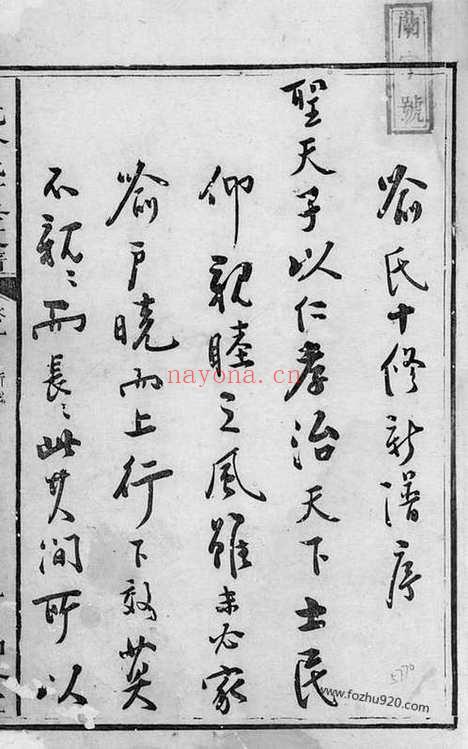 蘭字號
喻氏十修新譜序
聖天子以仁孝治天下士民
仰親睦之風雖未必家
喻戶曉而上行下效莫
不親〻而長〻此其間所以
nayona.cn
5770
www.fozhu920.com